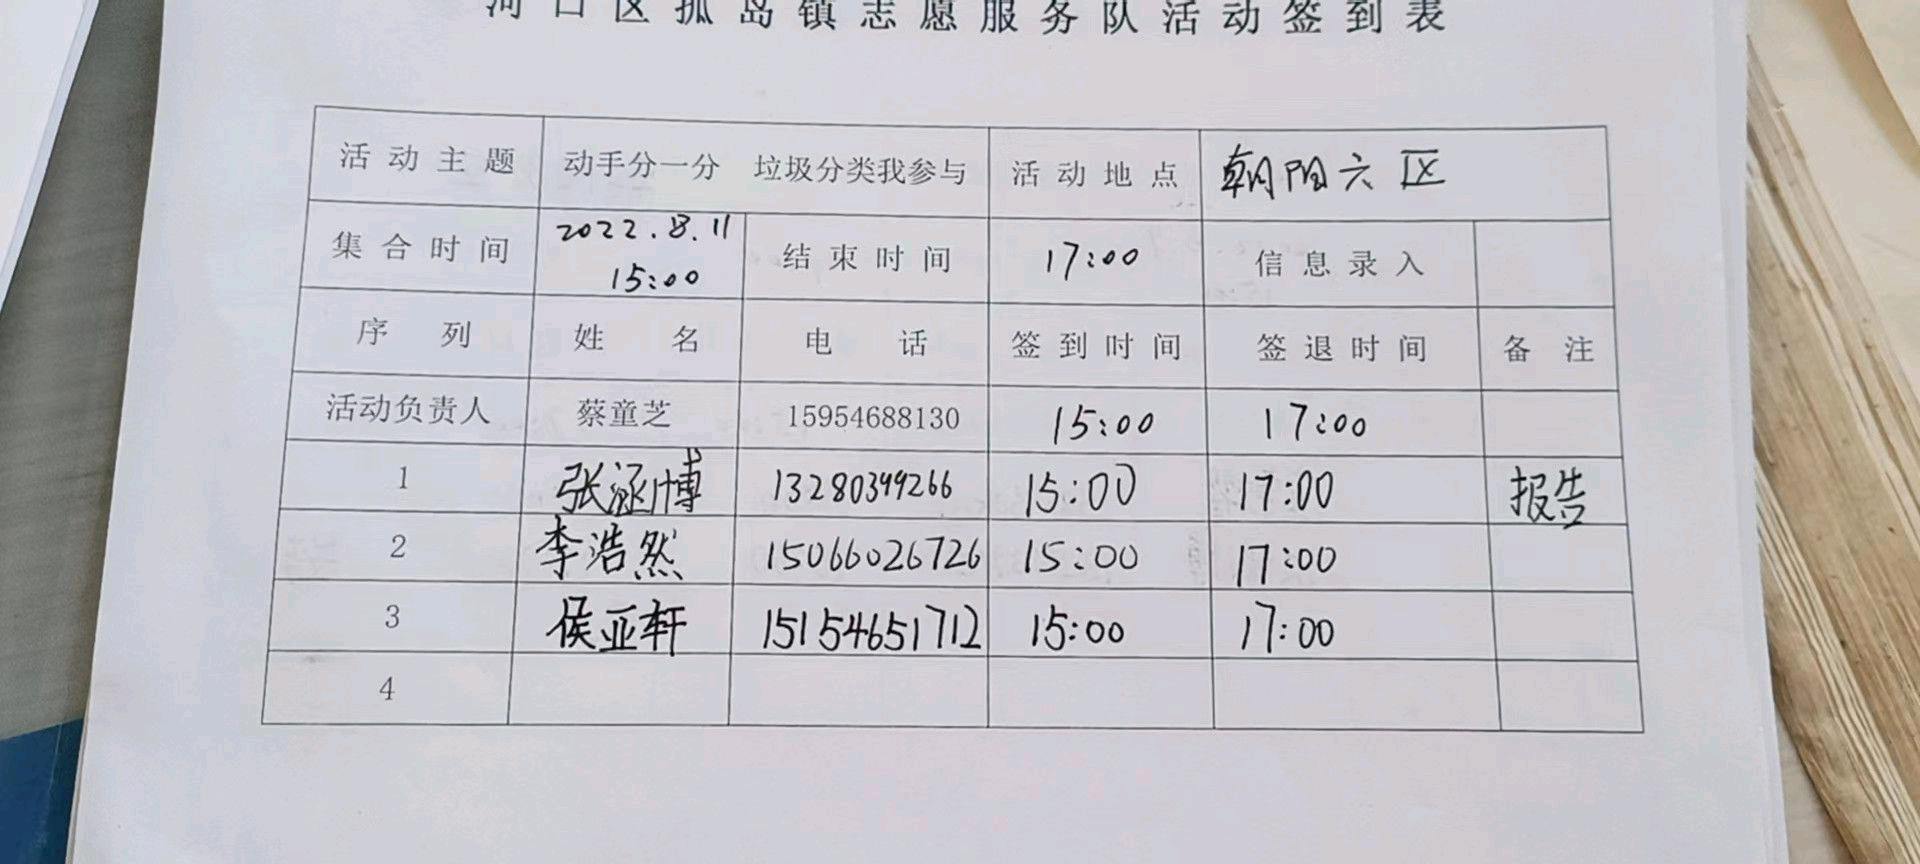 河口区孤岛镇志愿服务队活动签到表
活动主题 动手分一分 垃圾分类我参与 活动地点 朝阳六区
集合时间 2022.8.11 15:00 结束时间 17:00 信息录入
序列 姓名 电话 签到时间 签退时间 备注
活动负责人 蔡童芝 15954688130 15:00 17:00
1 张涵博 13280399266 15:00 17:00 报告
2 李浩然 15066026726 15:00 17:00
3 侯亚轩 15154651712 15:00 17:00
4